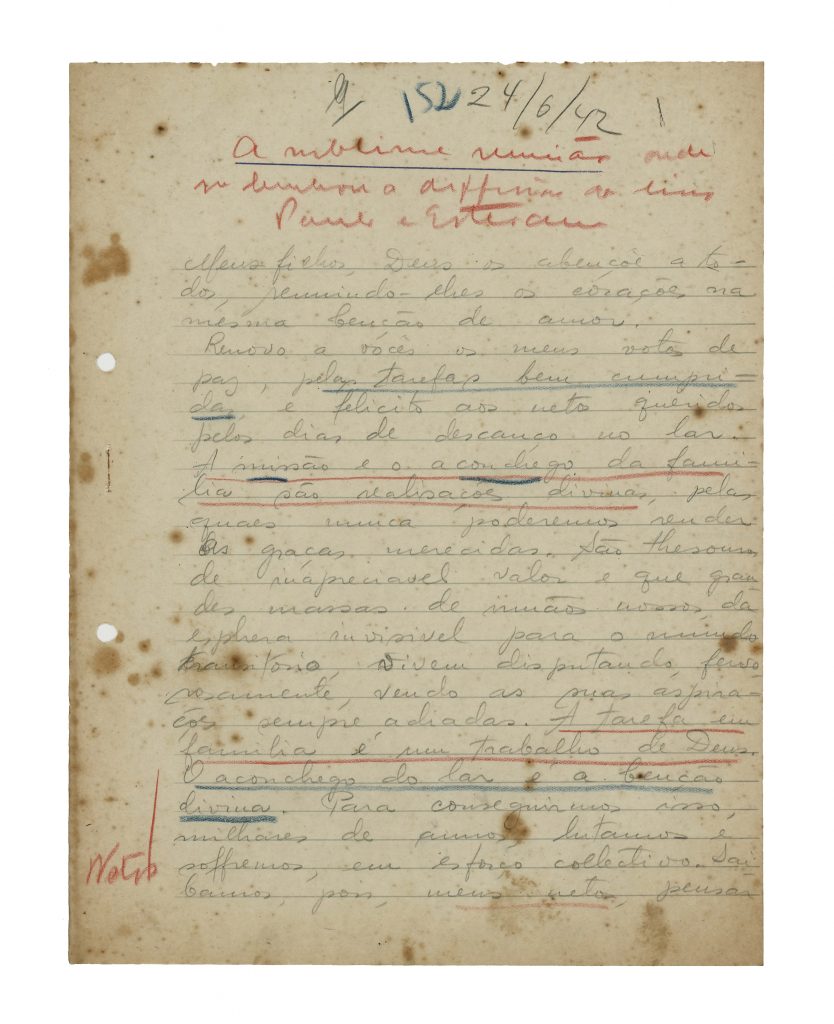 152 24/6/42 1
A sublime reunião onde
se lembrou a diffusão do livro
Paulo e Estevam
Meus filhos, Deus os abençôe a to-
dos, reunindo-lhes os corações na
mesma benção de amor.
Renovo a vocês os meus votos de
paz, pelas tarefas bem cumpri-
das, e felicito aos netos queridos
pelos dias de descanço no lar.
A missão e o aconchego da fami-
lia são realisações divinas, pelas
quaes nunca poderemos render
as graças merecidas. São thesouros
de inapreciavel valor e que gran
des massas de irmãos nossos, da
esphera invisivel para o mundo
transitorio, vivem disputando, fervo
rosamente, vendo as suas aspira-
ções sempre adiadas. A tarefa em
familia é um trabalho de Deus.
O aconchego do lar é a benção
divina. Para conseguirmos isso,
milhares de annos, lutamos e
soffremos, em esforço collectivo. Sai
Notas
bamos, pois, meus netos, pensar